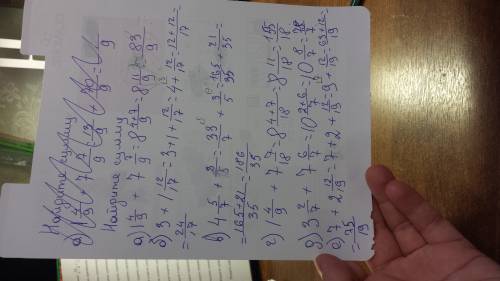 Найдите сумму
Найдите сумму
а) 1 4/9 + 7 7/9 = 8 4+7/9 = 8 11/9 = 83/9
б) 3 + 1 12/17 = 3 + 1 + 12/17 = 4 + 12/17 = 12+12/17 =
= 24/17
в) 4 5/7 + 3/5 = 33/7 + 3/5 = 165/35 + 21/35
= 165+21/35 = 186/35
г) 1 4/9 + 7 7/18 = 8 4+7/18 = 8 11/18 = 155/18
д) 3 2/7 + 7 6/7 = 10 2+6/7 = 10 8/7
е) 7 + 2 12/19 = 7 + 2 + 12/19 = 9 + 12/19 = 63+12/19 =
= 75/19